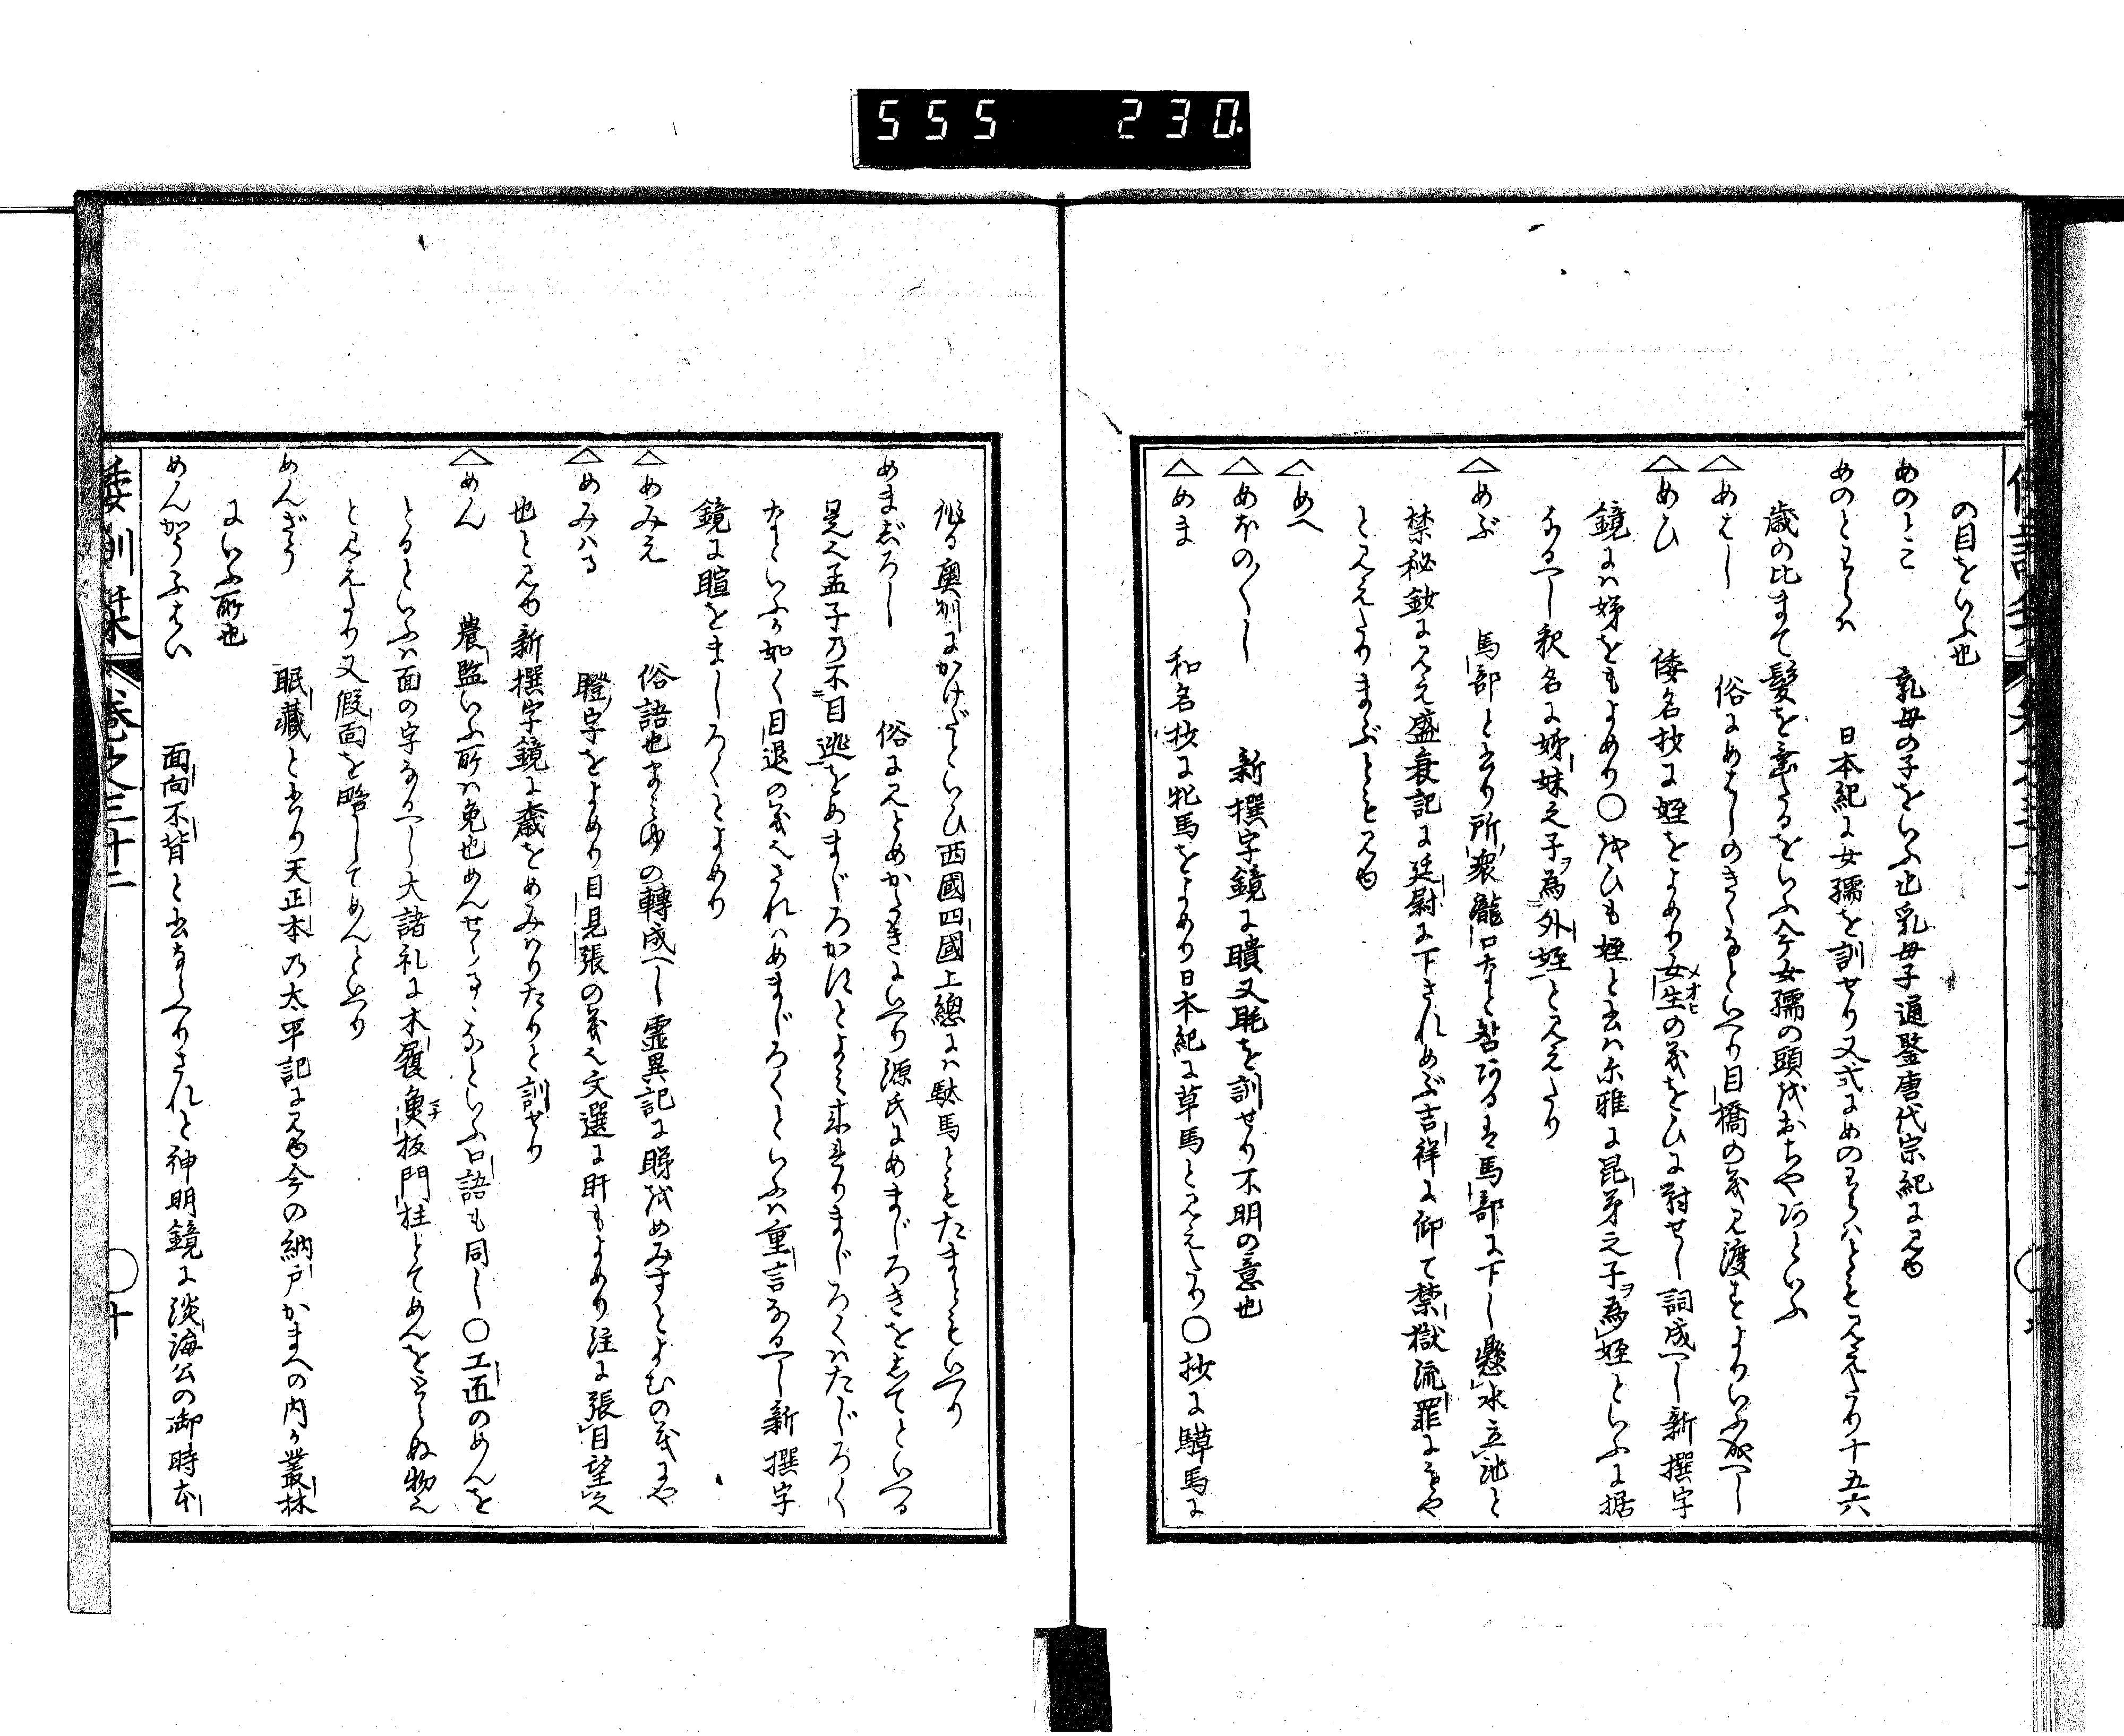 555 230.
の目をいふ也
めのとこ 乳母の子をいふ也乳母子通鑒唐代宗紀に見ゆ
めのとわらハ 日本紀に女孺を訓せり又式にめのわらハともミえたり十五六
歳の比まて髪を垂たるをいふ今女孺の頭をおちやアといふ
△めはし 俗にめはしのきくなといへり目橋の義見渡すよりいふ成へし
△めひ 倭名抄に姪をよめり女生の義をひに対せし詞成へし新撰字
メオヒ
鏡にハ娣をもよめり〇をひも姪と云ハ尓雅に昆弟之子ヲ為姪といふに据
なるへし釈名に姊妹之子ヲ為外姪と見えたり
△めぶ 馬部と書り所衆瀧口なと参ゐる是馬部に下し懸水立池と
禁秘鈔に見え盛衰記に廷尉に下されめぶ吉祥に仰て禁獄流罪にもや
と見えたりまぶとも見ゆ
△めへ
△めほの〱し 新撰字鏡に瞶又眊を訓せり不明の意也
△めま 和名抄に牝馬をよめり日本紀に草馬と見えたり〇抄に騲馬に
作る奥州にかけだといひ西國四國上總にハ駄馬ともたまともいへり
めまぜろし 俗に見とめかたきにいへり源氏にめまじろきをしてといへる
是也孟子乃不目逃をめまじろかずとよミ来れりまじろくハたじろく
なといふか如く目退の義也されハめまじろくといふハ重言なるへし新撰字
鏡に暄をましろくとよめり
△めみえ 俗語也まミゆの轉成へし霊異記に睇をめみすとよむの義にや
△めみハる 瞪字をよめり目見張の義也文選に盱もよめり注に張目望也
也と見ゆ新撰字鏡に䶒をめみハりたりと訓せり
△めん 農監いふ所ハ免也めんせらるゝなといふ口語も同し〇工匠のめんを
とるといふハ面の字なるへし大諸礼に木履魚板門柱とてめんをとらぬ物也
マナ
と見えたり又假面を略してめんといへり
めんざう 眠藏と書り天正本乃太平記に見ゆ今の納戸かまへの内か叢林
にいふ所也
めんかうふはい 面向不背と書ならへりされと神明鏡に淡海公の御時本
倭訓栞 巻之三十二 〇十